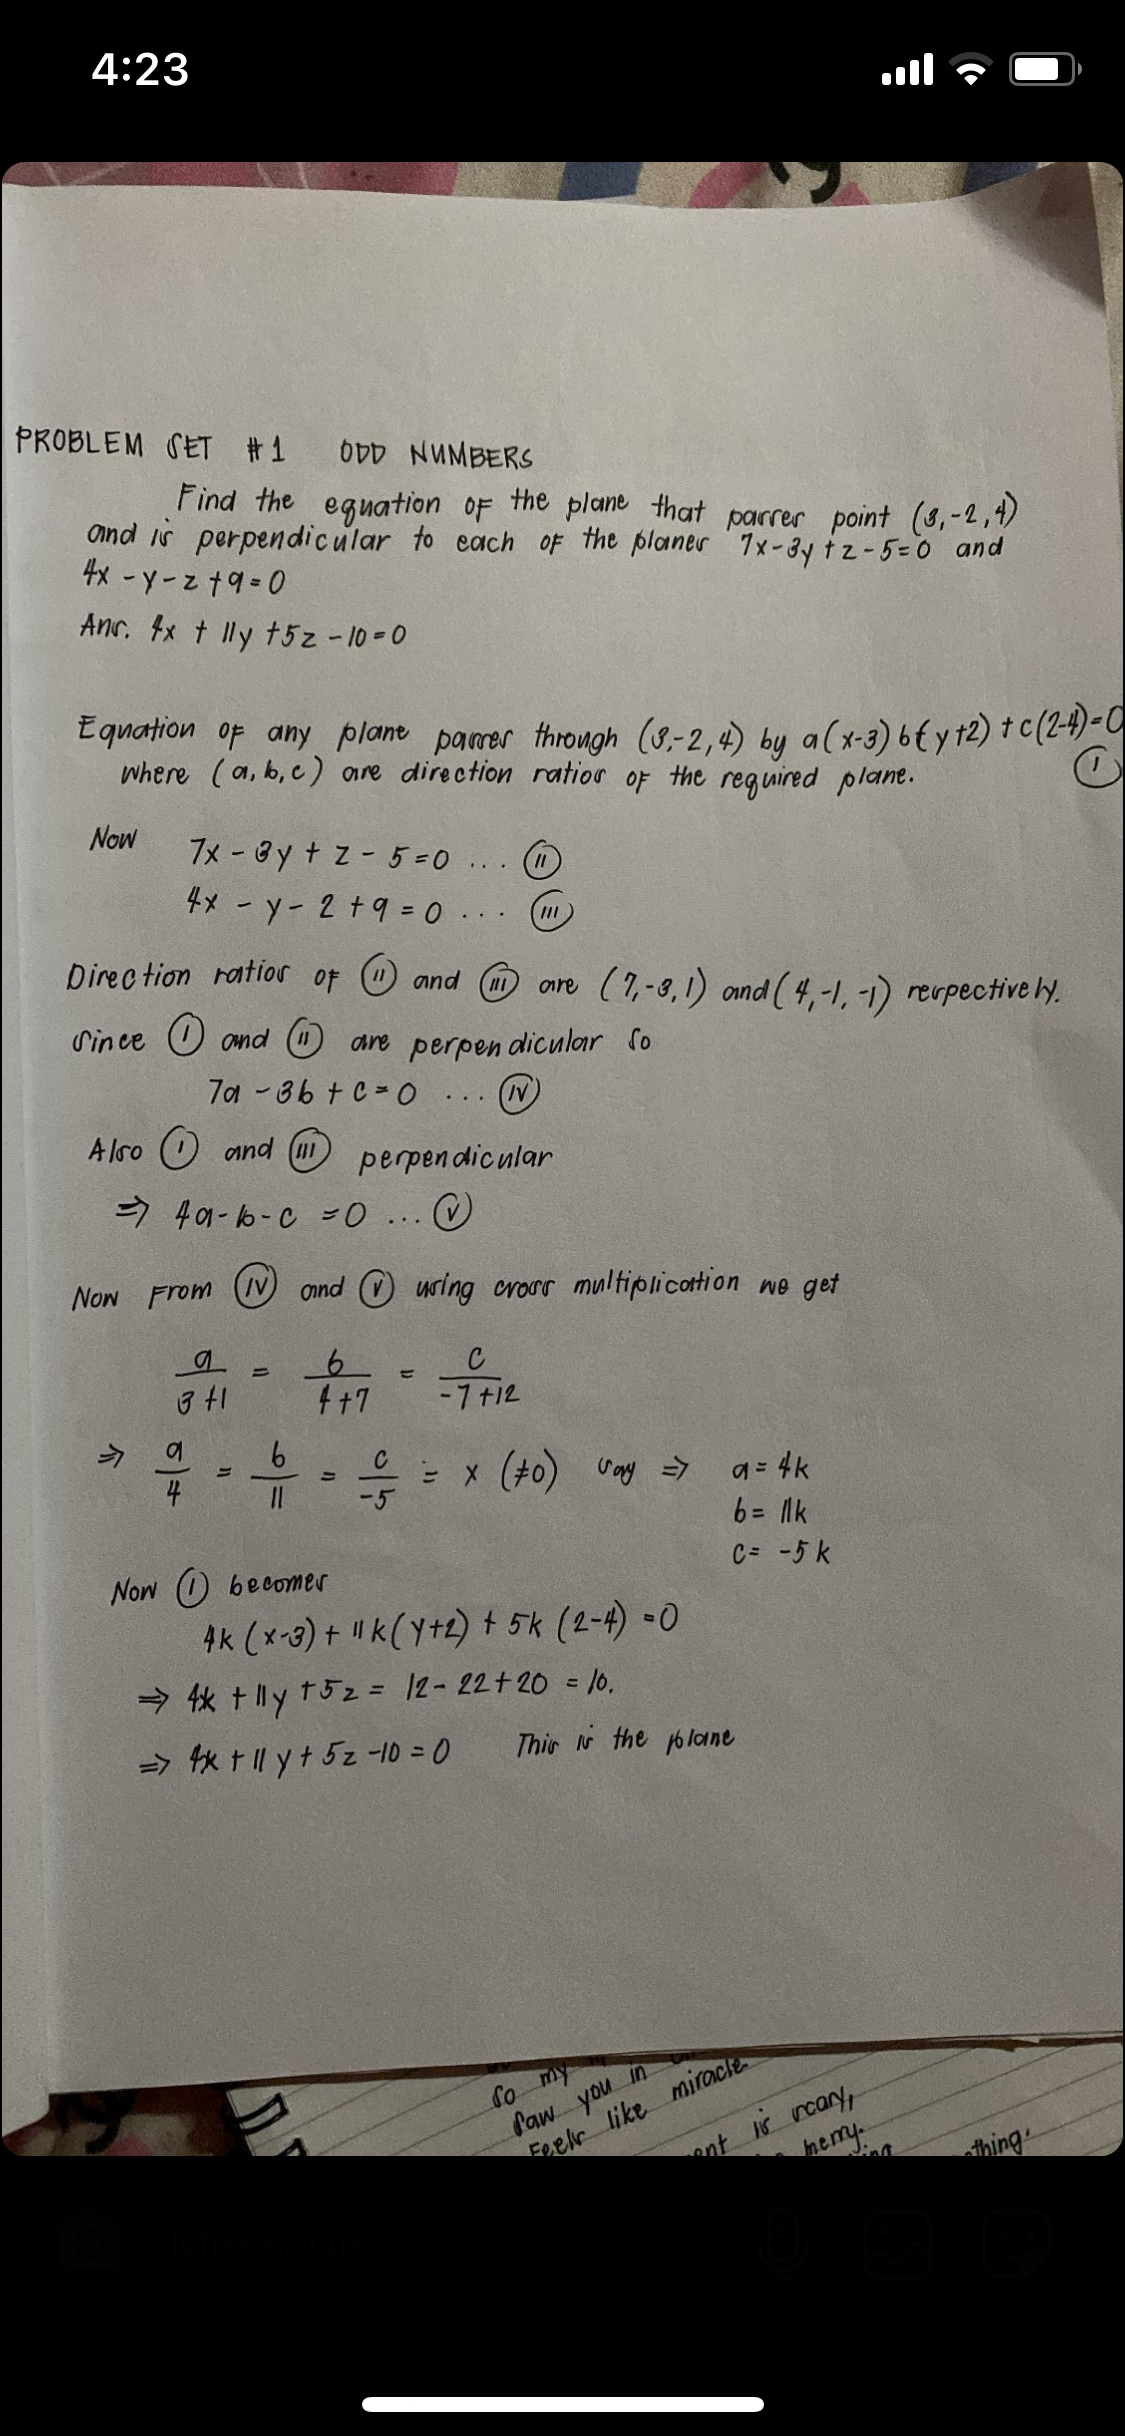 4:23
PROBLEM SET #1 ODD NUMBERS
Find the equation of the plane that passes point (3,-2,4)
and is perpendicular to each of the planes 7x-3y+z-5=0 and
4x-y-z+9=0
Ans. 4x + 11y +5z -10=0
Equation of any plane passes through (3,-2,4) by a(x-3) b(y+2) + c(2-4)=0
where (a,b,c) are direction ratios of the required plane. (I)
Now 7x - 3y + z - 5=0 ... (II)
4x - y - 2 + 9 = 0 ... (III)
Direction ratios of (II) and (III) are (7,-3,1) and (4,-1,-1) respectively.
Since (I) and (II) are perpendicular so
7a - 3b + c = 0 ... (IV)
Also (I) and (III) perpendicular
⇒ 4a-b-c =0 ... (V)
Now From (IV) and (V) using cross multiplication we get
a/3+1 = b/4+7 = c/-7+12
⇒ a/4 = b/11 = c/-5 = x (≠0) say ⇒ a = 4k
b = 11k
c = -5k
Now (I) becomes
4k (x-3) + 11k (y+2) + 5k (2-4) =0
⇒ 4x + 11y +5z = 12 - 22 + 20 = 10.
⇒ 4x + 11y + 5z -10 = 0 This is the plane
so my
saw you in
Feels like miracle
is scary,
merry.